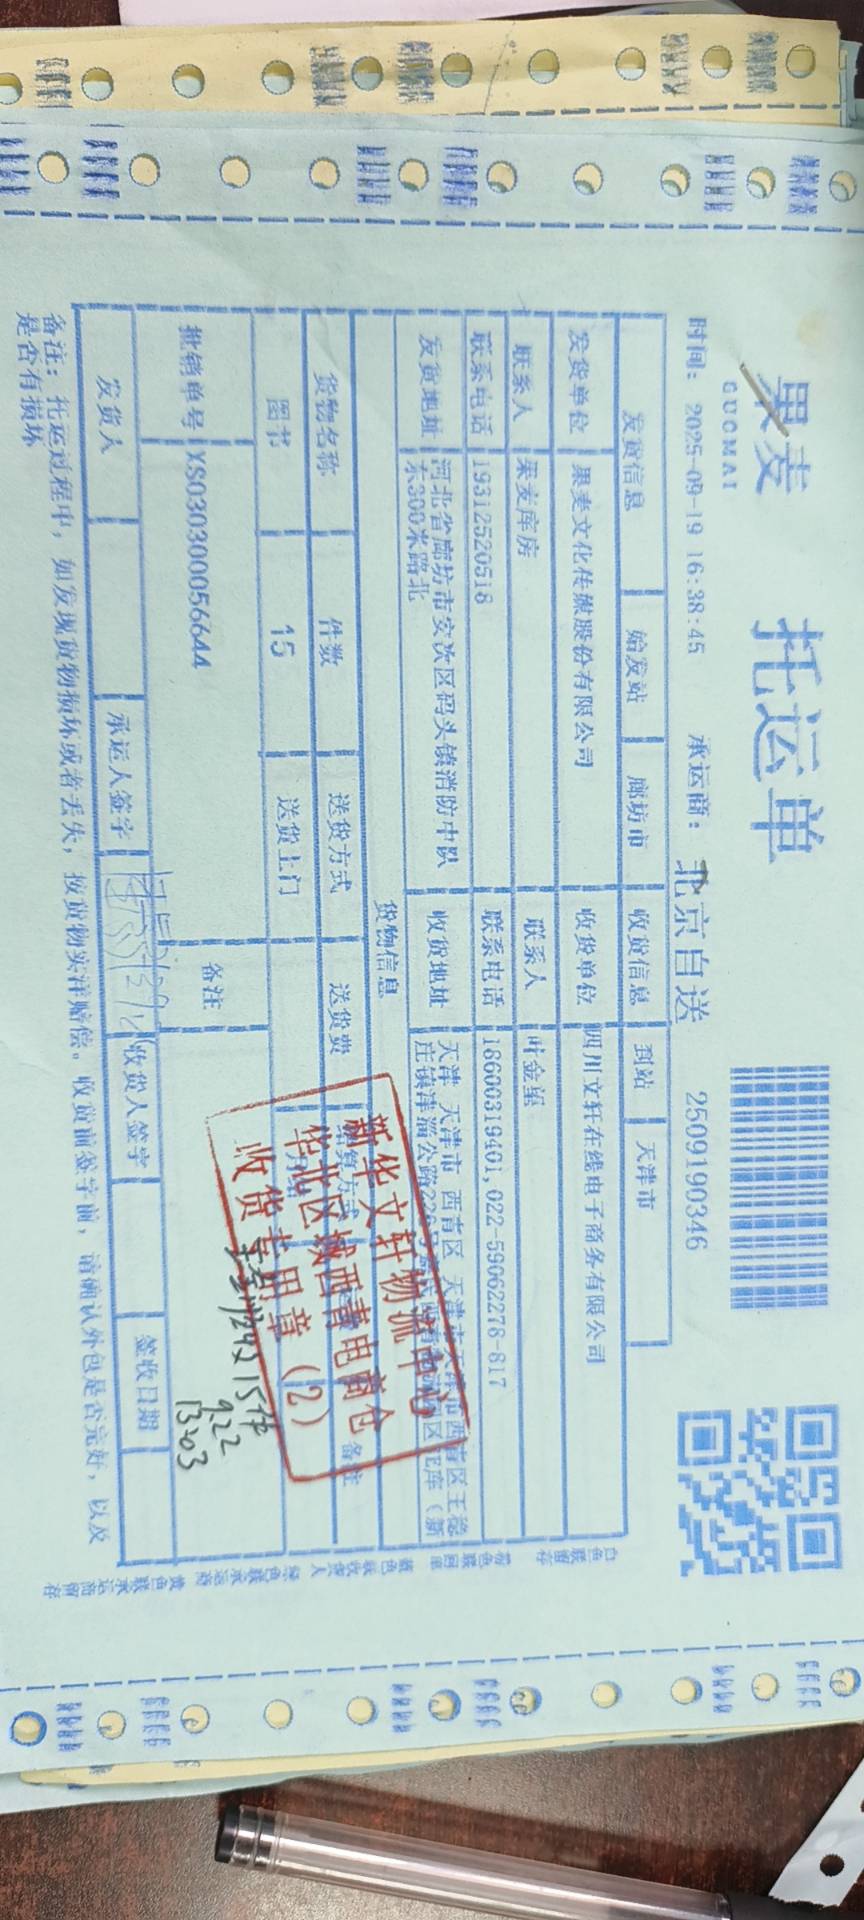 果麦
GUOMAI
托运单
时间: 2025-09-19 16:38:45 承运商: 北京自送 2509190346
发货信息 始发站 廊坊市 收货信息 到站 天津市
发货单位 果麦文化传媒股份有限公司 收货单位 四川文轩在线电子商务有限公司
联系人 果麦库房 联系人 叶金玺
联系电话 19312520518 联系电话 18600319401,022-59062278-817
发货地址 河北省廊坊市安次区码头镇消防中队东300米路北 收货地址 天津 天津市 西青区 天津市天津市西青区王稳庄镇津淄公路22 区E库(新
货物信息
货物名称 件数 送货方式 送货费 结算方式 备注
图书 15 送货上门 月结
批销单号 XS030300056644 备注
新华文轩物流中心
华北区域西青电商仓
收货专用章(2)
实收 15件
9.22
13:03
发货人 承运人签字 收货人签字 签收日期
备注: 托运过程中, 如发现货物损坏或者丢失, 按货物实洋赔偿。收货前签字前, 请确认外包是否完好, 以及
是否有损坏
白色联留存 粉色联回单 蓝色联收货人 绿色联承运商 黄色联承运商留存